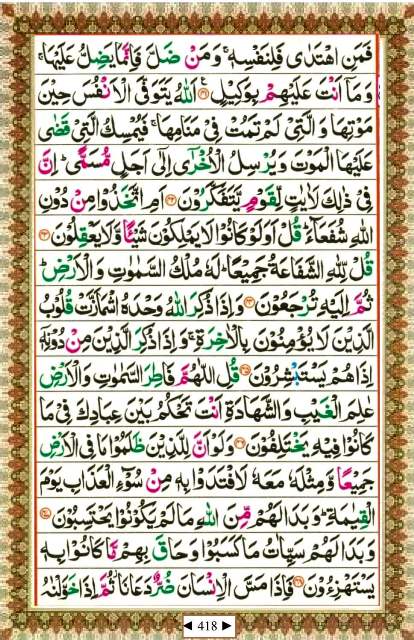 فَمَنِ اهْتَدٰى فَلِنَفْسِهٖ ۚ وَمَنْ ضَلَّ فَاِنَّمَا يَضِلُّ عَلَيْهَا ۚ
وَمَاۤ اَنْتَ عَلَيْهِمْ بِوَكِيْلٍ ۝۴۱ اَللّٰهُ يَتَوَفَّى الْاَنْفُسَ حِيْنَ
مَوْتِهَا وَالَّتِيْ لَمْ تَمُتْ فِيْ مَنَامِهَا ۚ فَيُمْسِكُ الَّتِيْ قَضٰى
عَلَيْهَا الْمَوْتَ وَيُرْسِلُ الْاُخْرٰۤى اِلٰۤى اَجَلٍ مُّسَمًّى ؕ اِنَّ
فِيْ ذٰلِكَ لَاٰيٰتٍ لِّقَوْمٍ يَّتَفَكَّرُوْنَ ۝۴۲ اَمِ اتَّخَذُوْا مِنْ دُوْنِ
اللّٰهِ شُفَعَآءَ ؕ قُلْ اَوَلَوْ كَانُوْا لَا يَمْلِكُوْنَ شَيْـًٔا وَّلَا يَعْقِلُوْنَ ۝۴۳
قُلْ لِّلّٰهِ الشَّفَاعَةُ جَمِيْعًا ؕ لَهٗ مُلْكُ السَّمٰوٰتِ وَالْاَرْضِ ؕ
ثُمَّ اِلَيْهِ تُرْجَعُوْنَ ۝۴۴ وَاِذَا ذُكِرَ اللّٰهُ وَحْدَهُ اشْمَاَزَّتْ قُلُوْبُ
الَّذِيْنَ لَا يُؤْمِنُوْنَ بِالْاٰخِرَةِ ۚ وَاِذَا ذُكِرَ الَّذِيْنَ مِنْ دُوْنِهٖۤ
اِذَا هُمْ يَسْتَبْشِرُوْنَ ۝۴۵ قُلِ اللّٰهُمَّ فَاطِرَ السَّمٰوٰتِ وَالْاَرْضِ
عٰلِمَ الْغَيْبِ وَالشَّهَادَةِ اَنْتَ تَحْكُمُ بَيْنَ عِبَادِكَ فِيْ مَا
كَانُوْا فِيْهِ يَخْتَلِفُوْنَ ۝۴۶ وَلَوْ اَنَّ لِلَّذِيْنَ ظَلَمُوْا مَا فِي الْاَرْضِ
جَمِيْعًا وَّمِثْلَهٗ مَعَهٗ لَافْتَدَوْا بِهٖ مِنْ سُوْٓءِ الْعَذَابِ يَوْمَ
الْقِيٰمَةِ ؕ وَبَدَا لَهُمْ مِّنَ اللّٰهِ مَا لَمْ يَكُوْنُوْا يَحْتَسِبُوْنَ ۝۴۷
وَبَدَا لَهُمْ سَيِّاٰتُ مَا كَسَبُوْا وَحَاقَ بِهِمْ مَّا كَانُوْا بِهٖ
يَسْتَهْزِءُوْنَ ۝۴۸ فَاِذَا مَسَّ الْاِنْسَانَ ضُرٌّ دَعَانَا ؗ ثُمَّ اِذَا خَوَّلْنٰهُ
◄ 418 ►